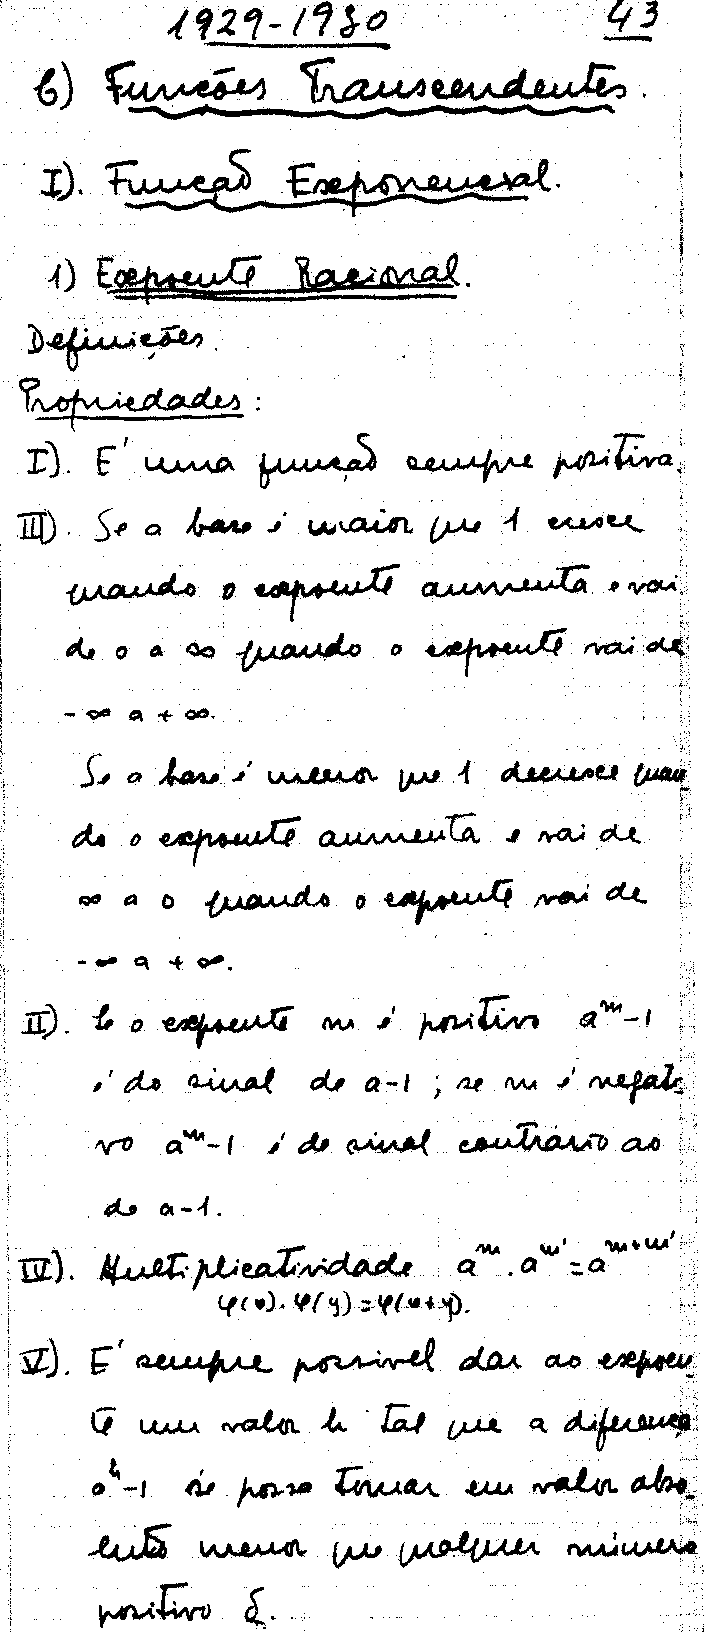 1929-1930 43
b) Funções Transcendentes.
I). Função Exponencial.
1) Expoente Racional.
Definições.
Propriedades:
I). E' uma função sempre positiva.
III). Se a base é maior que 1 cresce
quando o expoente aumenta e vai
de 0 a ∞ quando o expoente vai de
-∞ a +∞.
Se a base é menor que 1 decresce quan
do o expoente aumenta e vai de
∞ a 0 quando o expoente vai de
-∞ a +∞.
II). Se o expoente m é positivo a^m-1
é do sinal de a-1; se m é negati-
vo a^m-1 é de sinal contrário ao
de a-1.
IV). Multiplicatividade a^m.a^m'=a^m+m'
φ(x).φ(y)=φ(x+y).
V). E' sempre possivel dar ao expoen
te um valor h tal que a diferença
a^h-1 se possa tornar em valor abso-
luto menor que qualquer número
positivo δ.